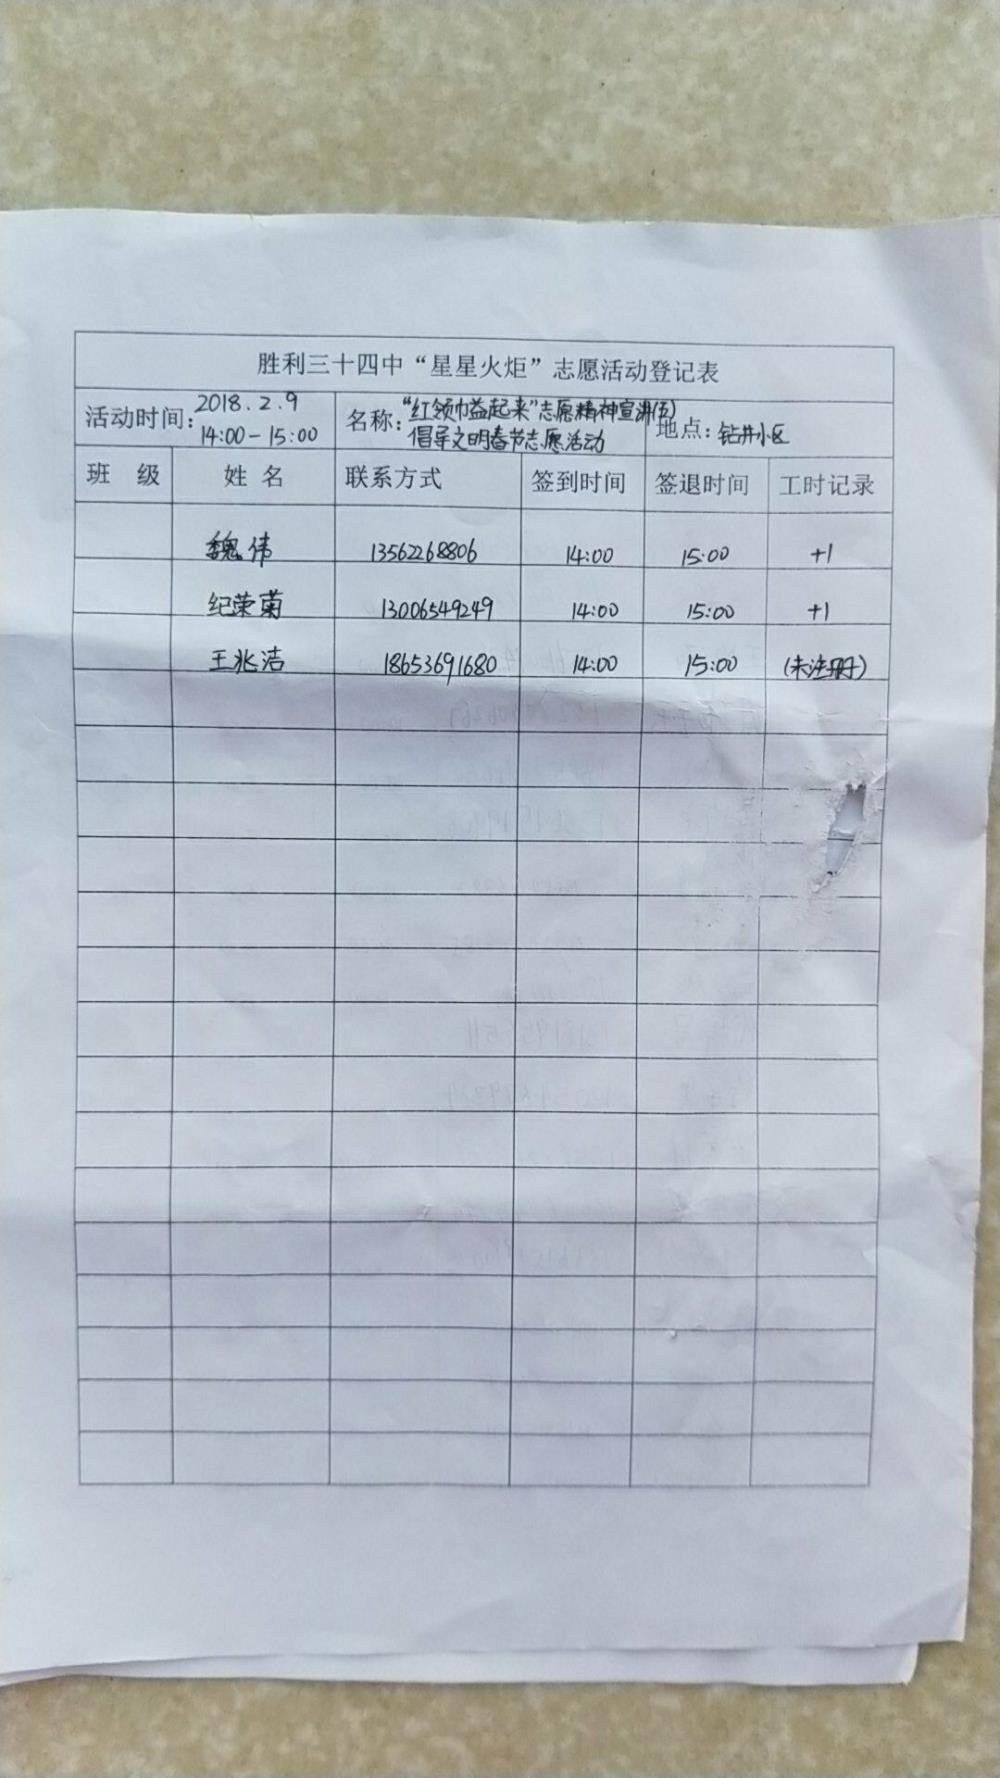 胜利三十四中“星星火炬”志愿活动登记表
活动时间：2018.2.9 14:00-15:00 名称：“红领巾益起来”志愿精神宣讲(五) 倡导文明春节志愿活动 地点：钻井小区
班 级 姓 名 联系方式 签到时间 签退时间 工时记录
魏伟 13562268806 14:00 15:00 +1
纪荣菊 13006549249 14:00 15:00 +1
王兆洁 18653691680 14:00 15:00 (未注册)